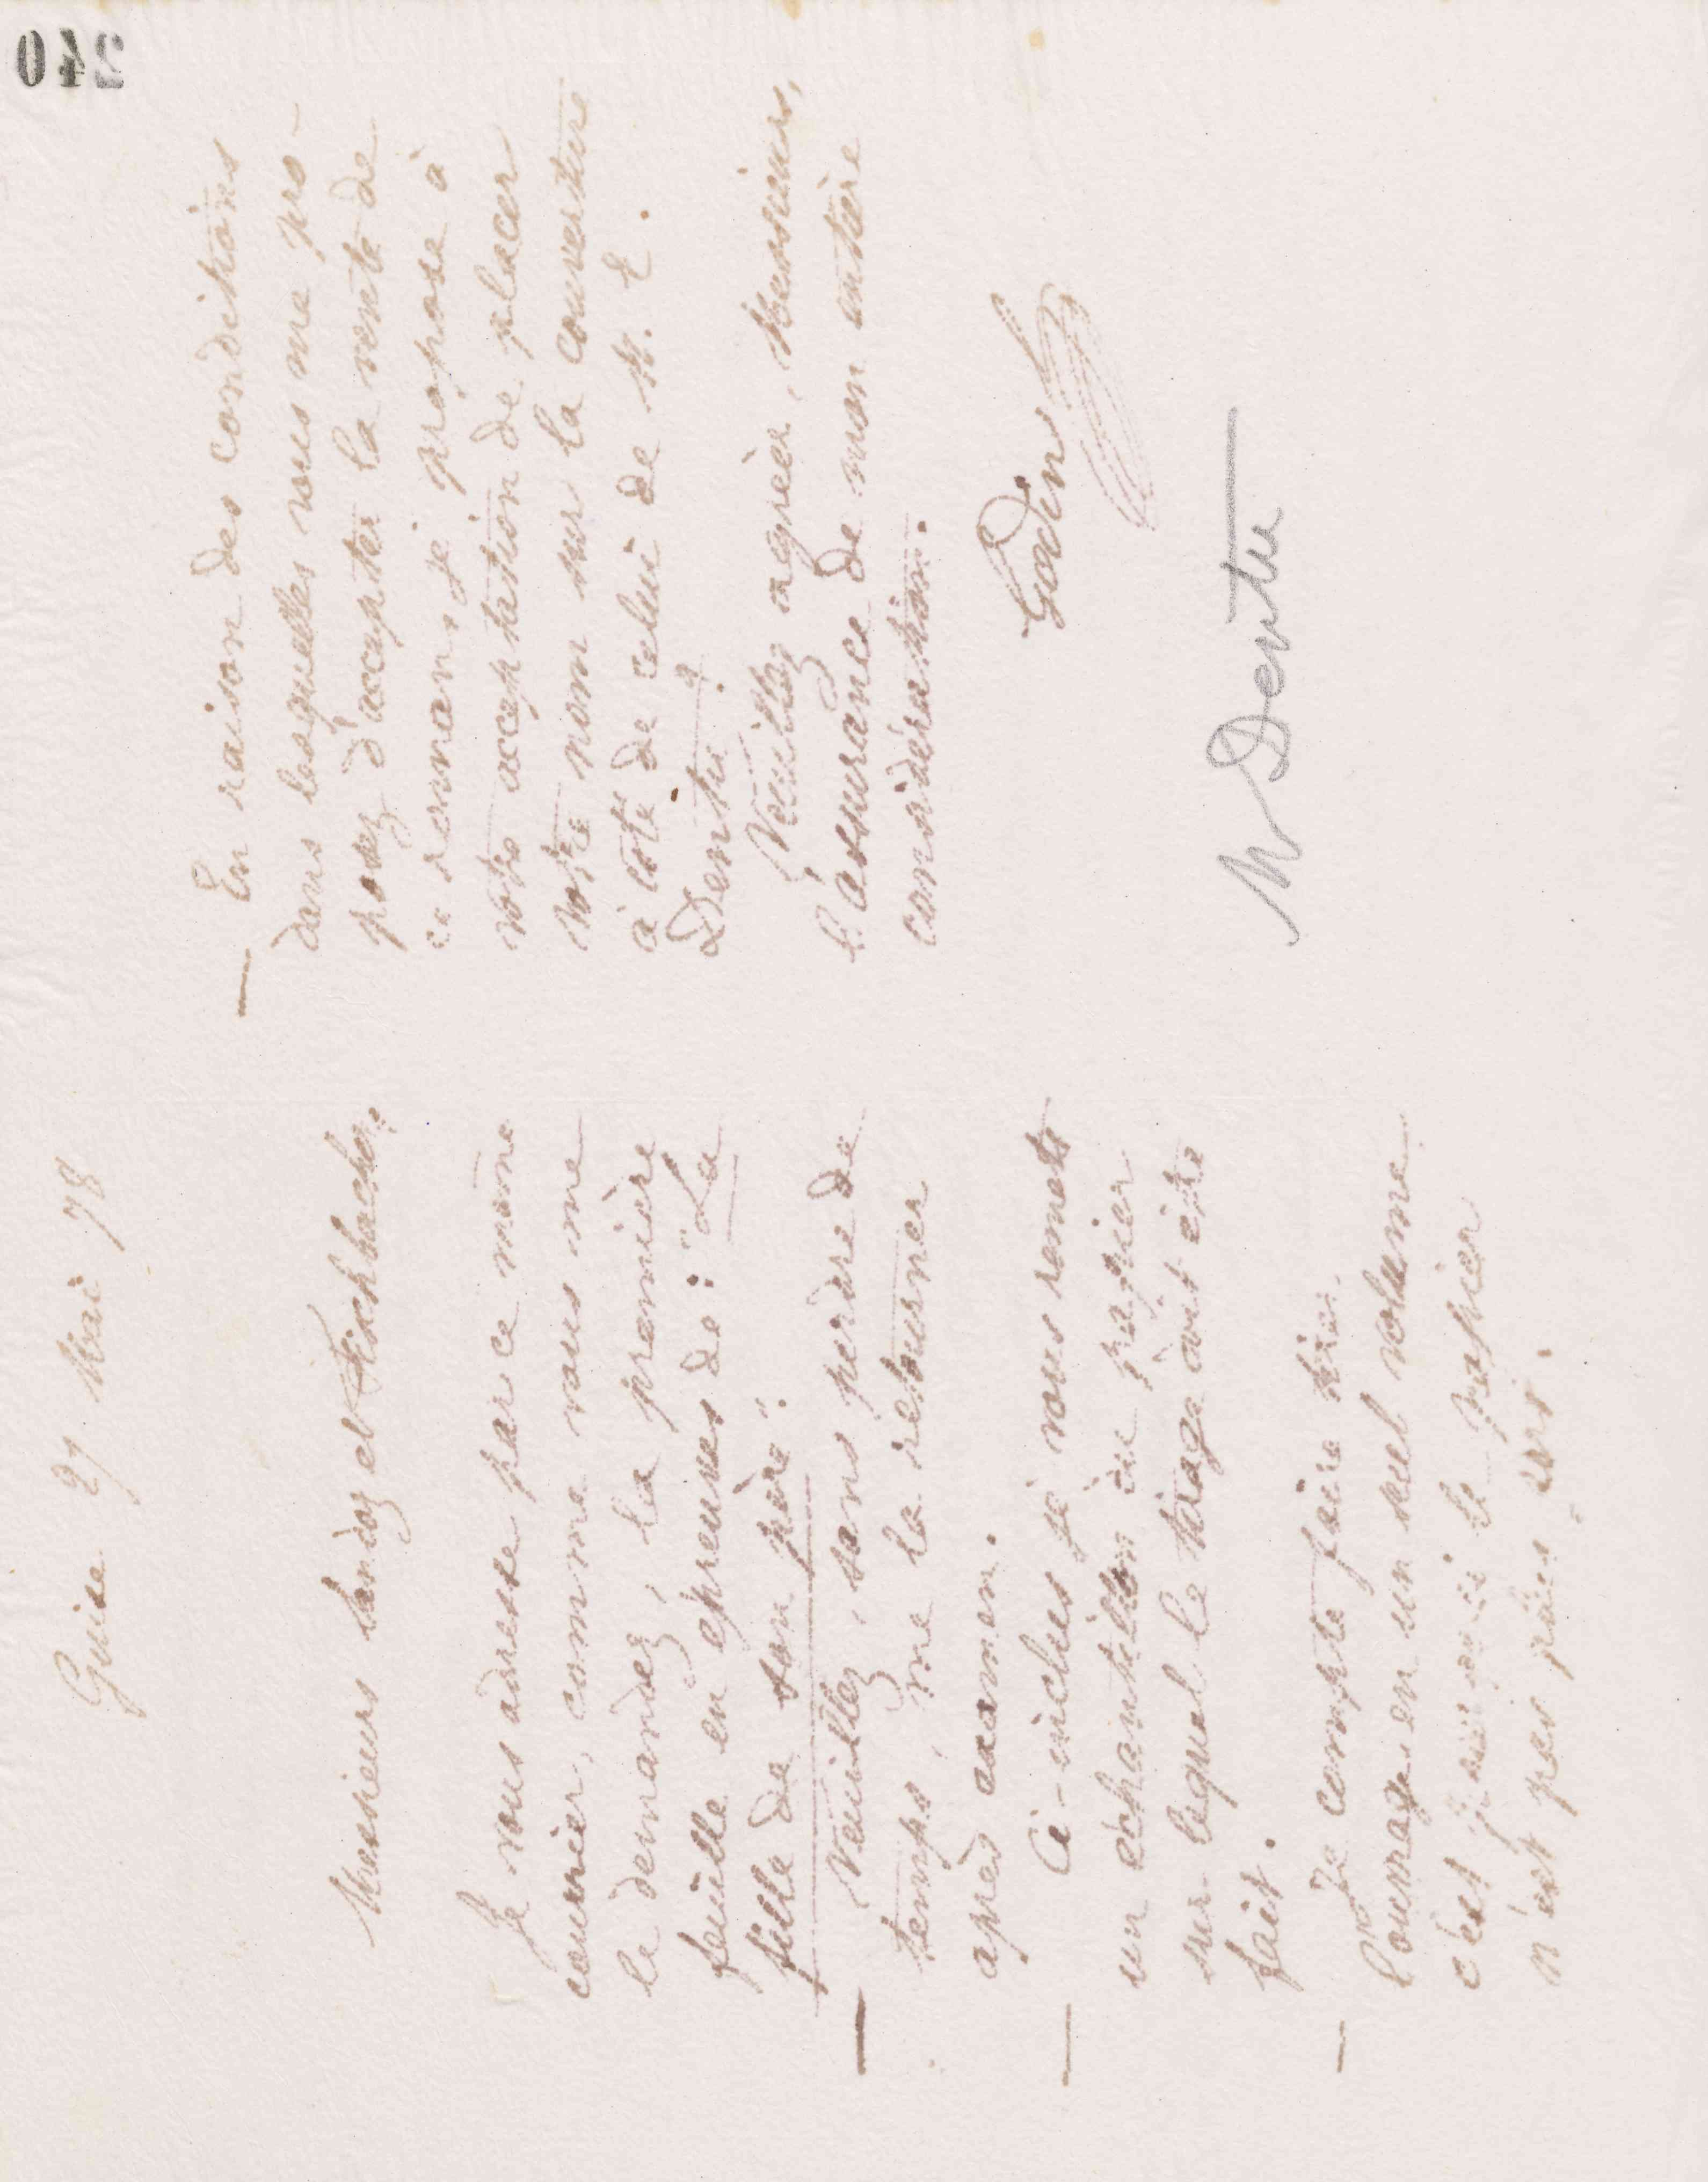 240
Guise 27 Mai 78
Messieurs Sandoz et Fischbacher,
Je vous adresse par ce même
courrier, comme vous me
le demandez, la première
feuille en épreuves de : "La
fille de son père".
— Veuillez, sans perdre de
temps, me la retourner
après examen.
— Ci-inclus je vous remets
un échantillon du papier
sur lequel le tirage doit être
fait.
— Je compte faire tirer
l'ouvrage en un seul volume
c'est pourquoi le papier
n'est pas plus
— En raison des conditions
dans lesquelles vous me pro-
posez d'accepter la vente de
ce roman, je propose à
votre acceptation de placer
votre nom sur la couverture
à côté de celui de M. E.
Dentu.
Veuillez agréer, Messieurs,
l'assurance de mon entière
considération.
Godin
M Dentu